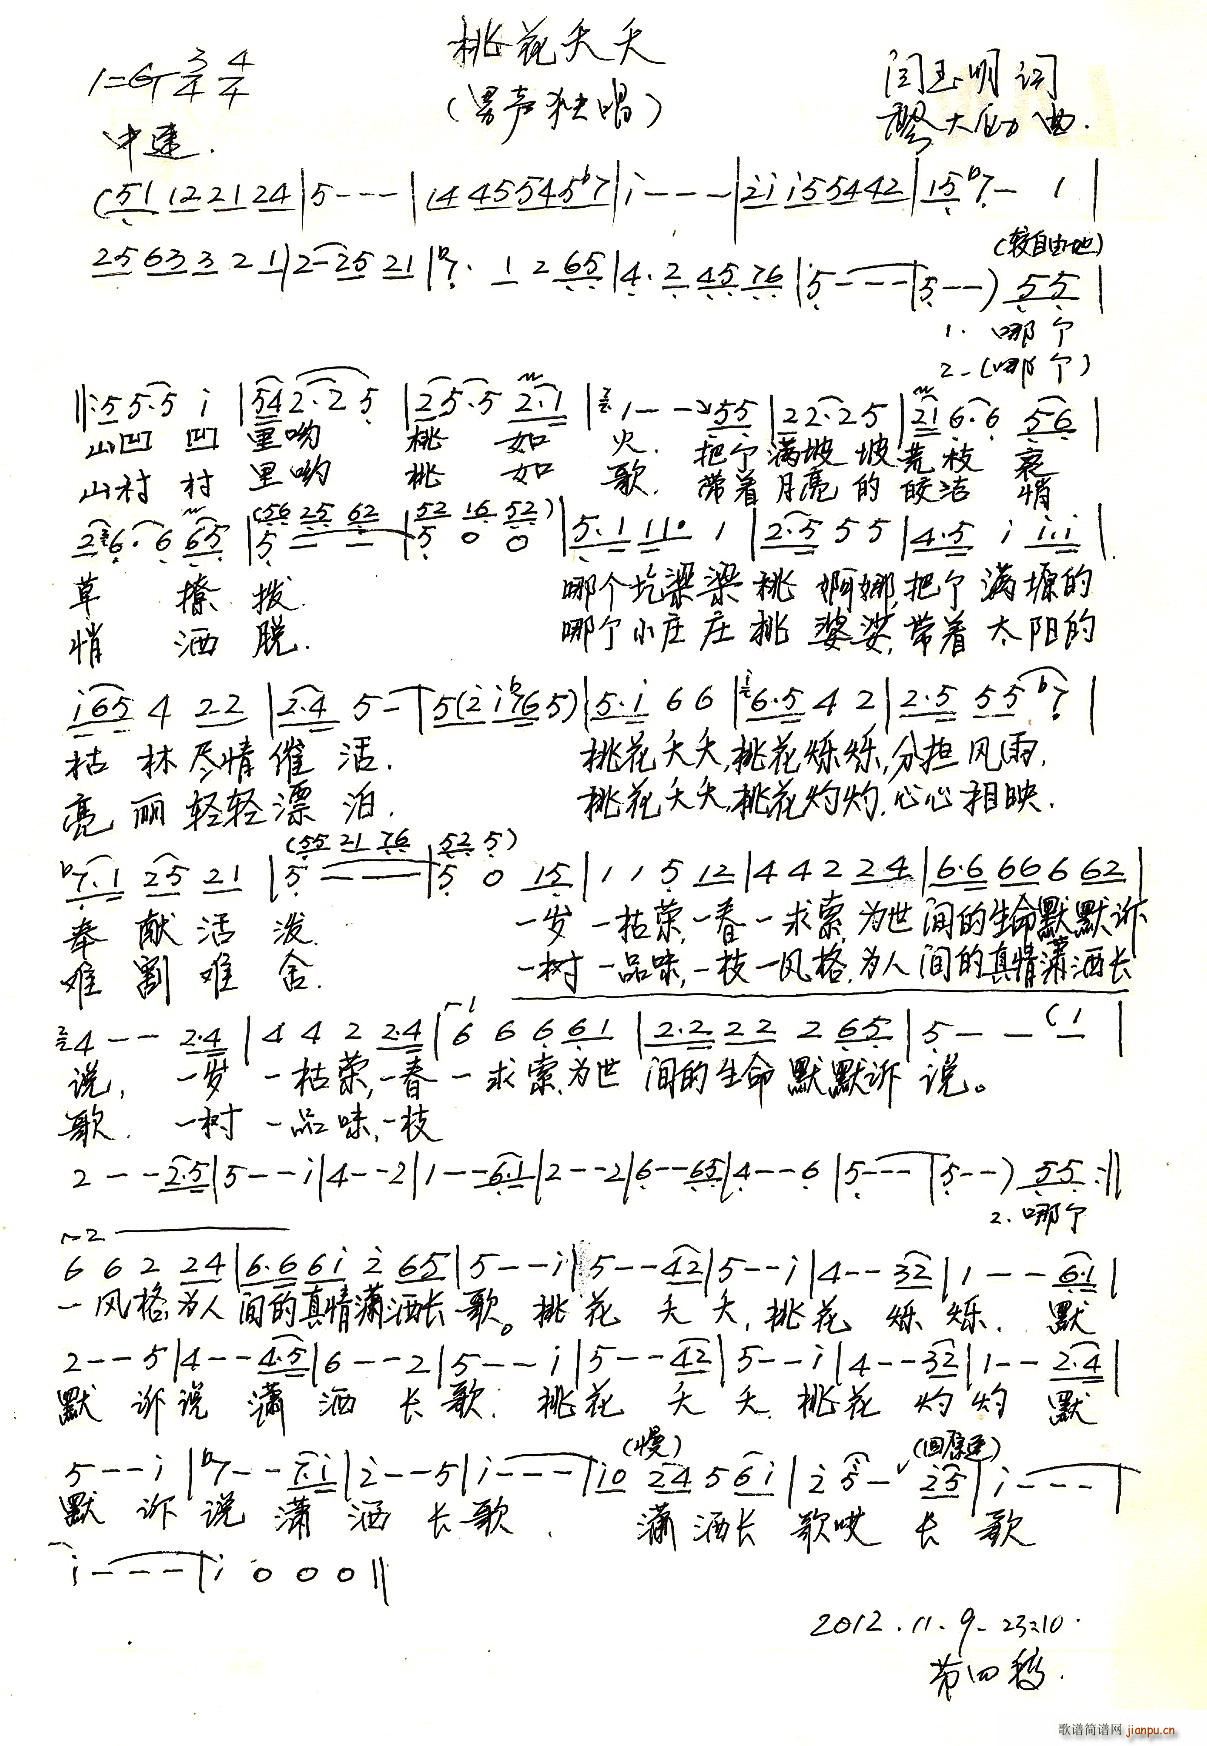 桃花夭夭
1=G 3/4 4/4
(男声独唱)
闫玉明 词
大 曲.
中速.
(51 12 21 24 | 5 - - - | 14 45 54 5♭7 | i - - - | 2i i5 54 42 | 15 ♭7 - 1 |
(较自由地)
25 63 3 2 1 | 2 - 25 21 | ♭7. 1 2 65 | 4. 2 45 76 | 5 - - - | 5 - - ) 55 |
1. 哪个
2. (哪个)
‖: 5 5. 5 i | 54 2. 2 5 | 25. 5 2. 1 | 1 - - 55 | 22. 2 5 | 21 6. 6 56 |
山凹 凹 里哟 桃 如 火. 把个满坡 坡荒枝 衰
山村 村 里哟 桃 如 歌. 带着月亮 的 皎洁 悄
(56 25 62 | 52 16 52)
2 6. 6 65 | 5 - - | 5 0 0 | 5. 1 11. 1 | 2. 5 5 5 | 4. 5 i i. i |
草 撩 拨. 哪个圪梁梁 桃 婀娜,把个 满塬的
悄 洒 脱. 哪个小庄庄 桃 婆娑,带着 太阳的
i65 4 22 | 2. 4 5 - | 5(2 i♭765) | 5. i 6 6 | 6. 5 4 2 | 2. 5 55 ♭7 |
枯 林尽情 催 活. 桃花夭夭,桃花烁烁,分担 风雨.
亮 丽 轻轻 漂 泊. 桃花夭夭,桃花灼灼,心心 相映.
(55 21 76 | 52 5)
♭7. 1 25 21 | 5 - - - | 5 0 15 | 1 1 5 12 | 4 4 2 24 | 6. 6 66 6 62 |
奉 献 活 泼. 一岁 一枯荣,一春 一求索,为世 间的生命默默诉
难 割 难 舍. 一树 一品味,一枝 一风格,为人 间的真情潇洒长
1
4 - - 2. 4 | 4 4 2 2. 4 | 6 6 6 61 | 2. 2 22 2 65 | 5 - - (1 |
说, 一岁 一枯荣,一春 一求索,为世 间的生命 默默诉 说。
歌. 一树 一品味,一枝
2 - - 2. 5 | 5 - - i | 4 - - 2 | 1 - - 6. 1 | 2 - - 2 | 6 - - 65 | 4 - - 6 | 5 - - - | 5 - - ) 55 :‖
2. 哪个
2
6 6 2 24 | 6. 6 6i 2 65 | 5 - - i | 5 - - 42 | 5 - - i | 4 - - 32 | 1 - - 6. 1 |
一风格,为人 间的真情潇洒长 歌。桃 花 夭 夭,桃 花 烁 烁. 默
2 - - 5 | 4 - - 4. 5 | 6 - - 2 | 5 - - i | 5 - - 42 | 5 - - i | 4 - - 32 | 1 - - 2. 4 |
默 诉说 潇 洒 长 歌. 桃花 夭 夭.桃花 灼灼 默
(慢) (回原速)
5 - - i | ♭7 - - 7. i | 2 - - 5 | i - - - | i0 24 5 6i | 2 5 - 25 | i - - - |
默 诉 说 潇 洒 长歌. 潇 洒长 歌哎 长 歌
i - - - | i 0 0 0 ‖
2012.11.9. 23:10.
第四稿.
歌谱简谱网 jianpu.cn